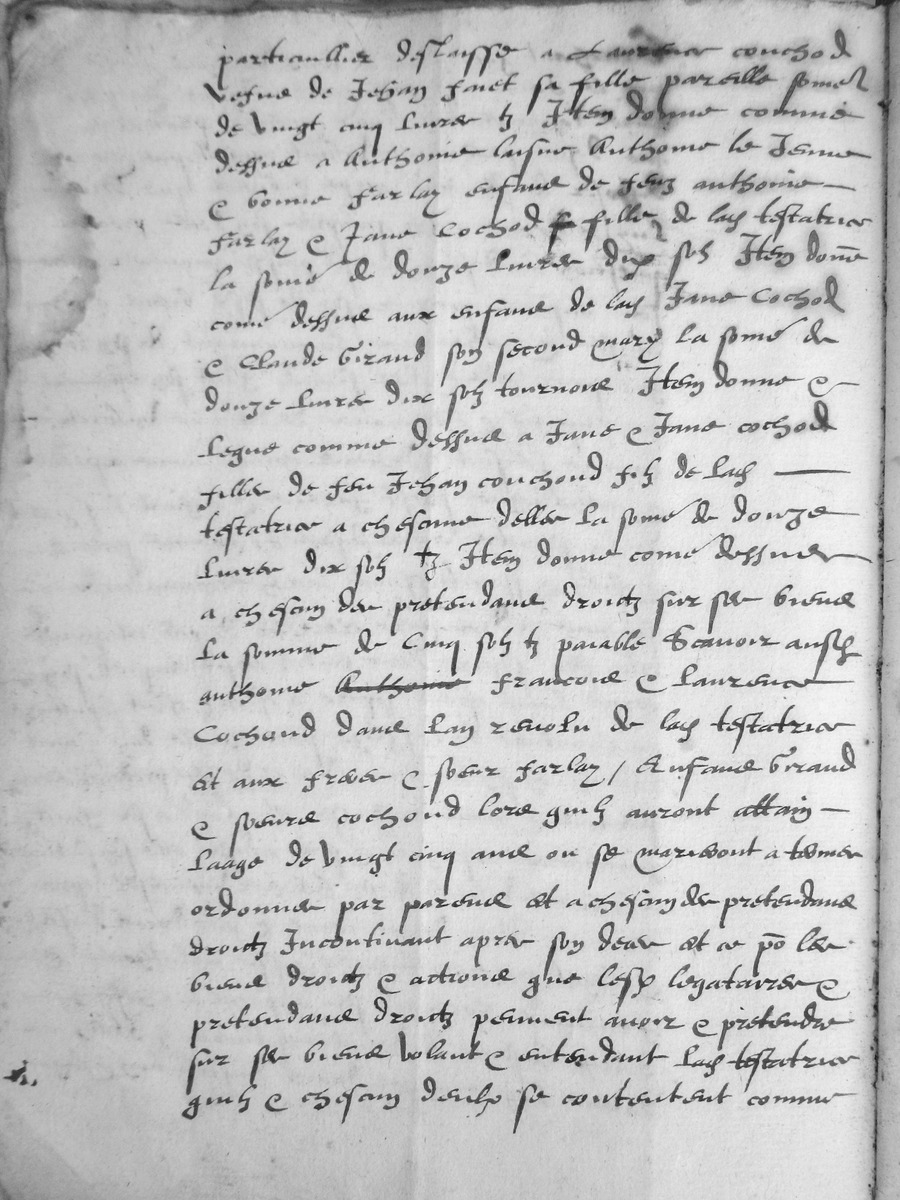 particullier deslaisse a Laurence couchod
vefve de Jehan faict sa fille pareille some
de vingt cinq livres tz Item donne comme
dessus a Anthonie laisne Anthonie le Jeune
& bonne farlay enfans de feuz anthoine
farlay & Jane Cochod fille de lad testatrice
la some de douze livres dix solz Item donne
come dessus aux enfans de lad Jane Cochod
& Claude Giraud son second mary la some de
douze livres dix solz tournois Item donne &
legue comme dessus a Jane & Jane cochod
filles de feu Jehan couchoud filz de lad
testatrice a chescune delles la some de douze
livres dix solz tz Item donne come dessus
a chescun des pretendans droictz sur ses biens
la somme de Cinq solz tz paiable Scavoir ausd
anthonie Anthonie francois & Laurence
Cochoud dans lan revolu de lad testatrice
Et aux freres & soeur farlay / Enfans Giraud
& soeurs cochoud lors quilz auront attain
laage de vingt cinq ans ou se marieront a termes
ordonner par parens Et a chescun des pretendans
droictz Incontinant apres son deces Et ce po les
biens droictz & actions que lesd legataires &
pretendans droictz peuvent avoir & pretendre
sur ses biens volant & entendant lad testatrice
quilz & chescun deulx se contentent comme